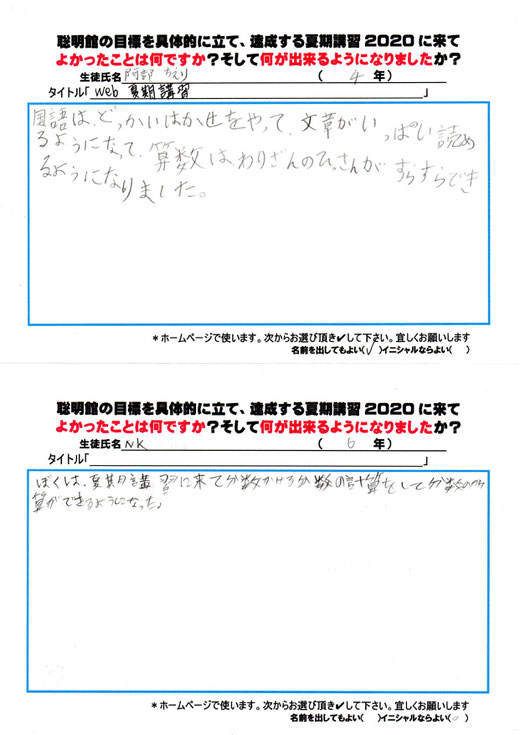 聡明館の目標を具体的に立て、達成する夏期講習2020に来て
よかったことは何ですか?そして何が出来るようになりましたか?
生徒氏名 阿部 ちえり ( 4 年)
タイトル「 Web 夏期講習 」
国語は、どっかいはかせをやって、文章がいっぱい読め
るようになって、算数はわりざんのひっさんがすらすらでき
るようになりました。
*ホームページで使います。次からお選び頂き✔して下さい。宜しくお願いします
名前を出してもよい(✓)イニシャルならよい( )
聡明館の目標を具体的に立て、達成する夏期講習2020に来て
よかったことは何ですか?そして何が出来るようになりましたか?
生徒氏名 NK ( 6 年)
タイトル「 」
ぼくは、夏期講習に来て分数かける分数の計算をして分数のかけ
算ができるようになった。
*ホームページで使います。次からお選び頂き✔して下さい。宜しくお願いします
名前を出してもよい( )イニシャルならよい(○)